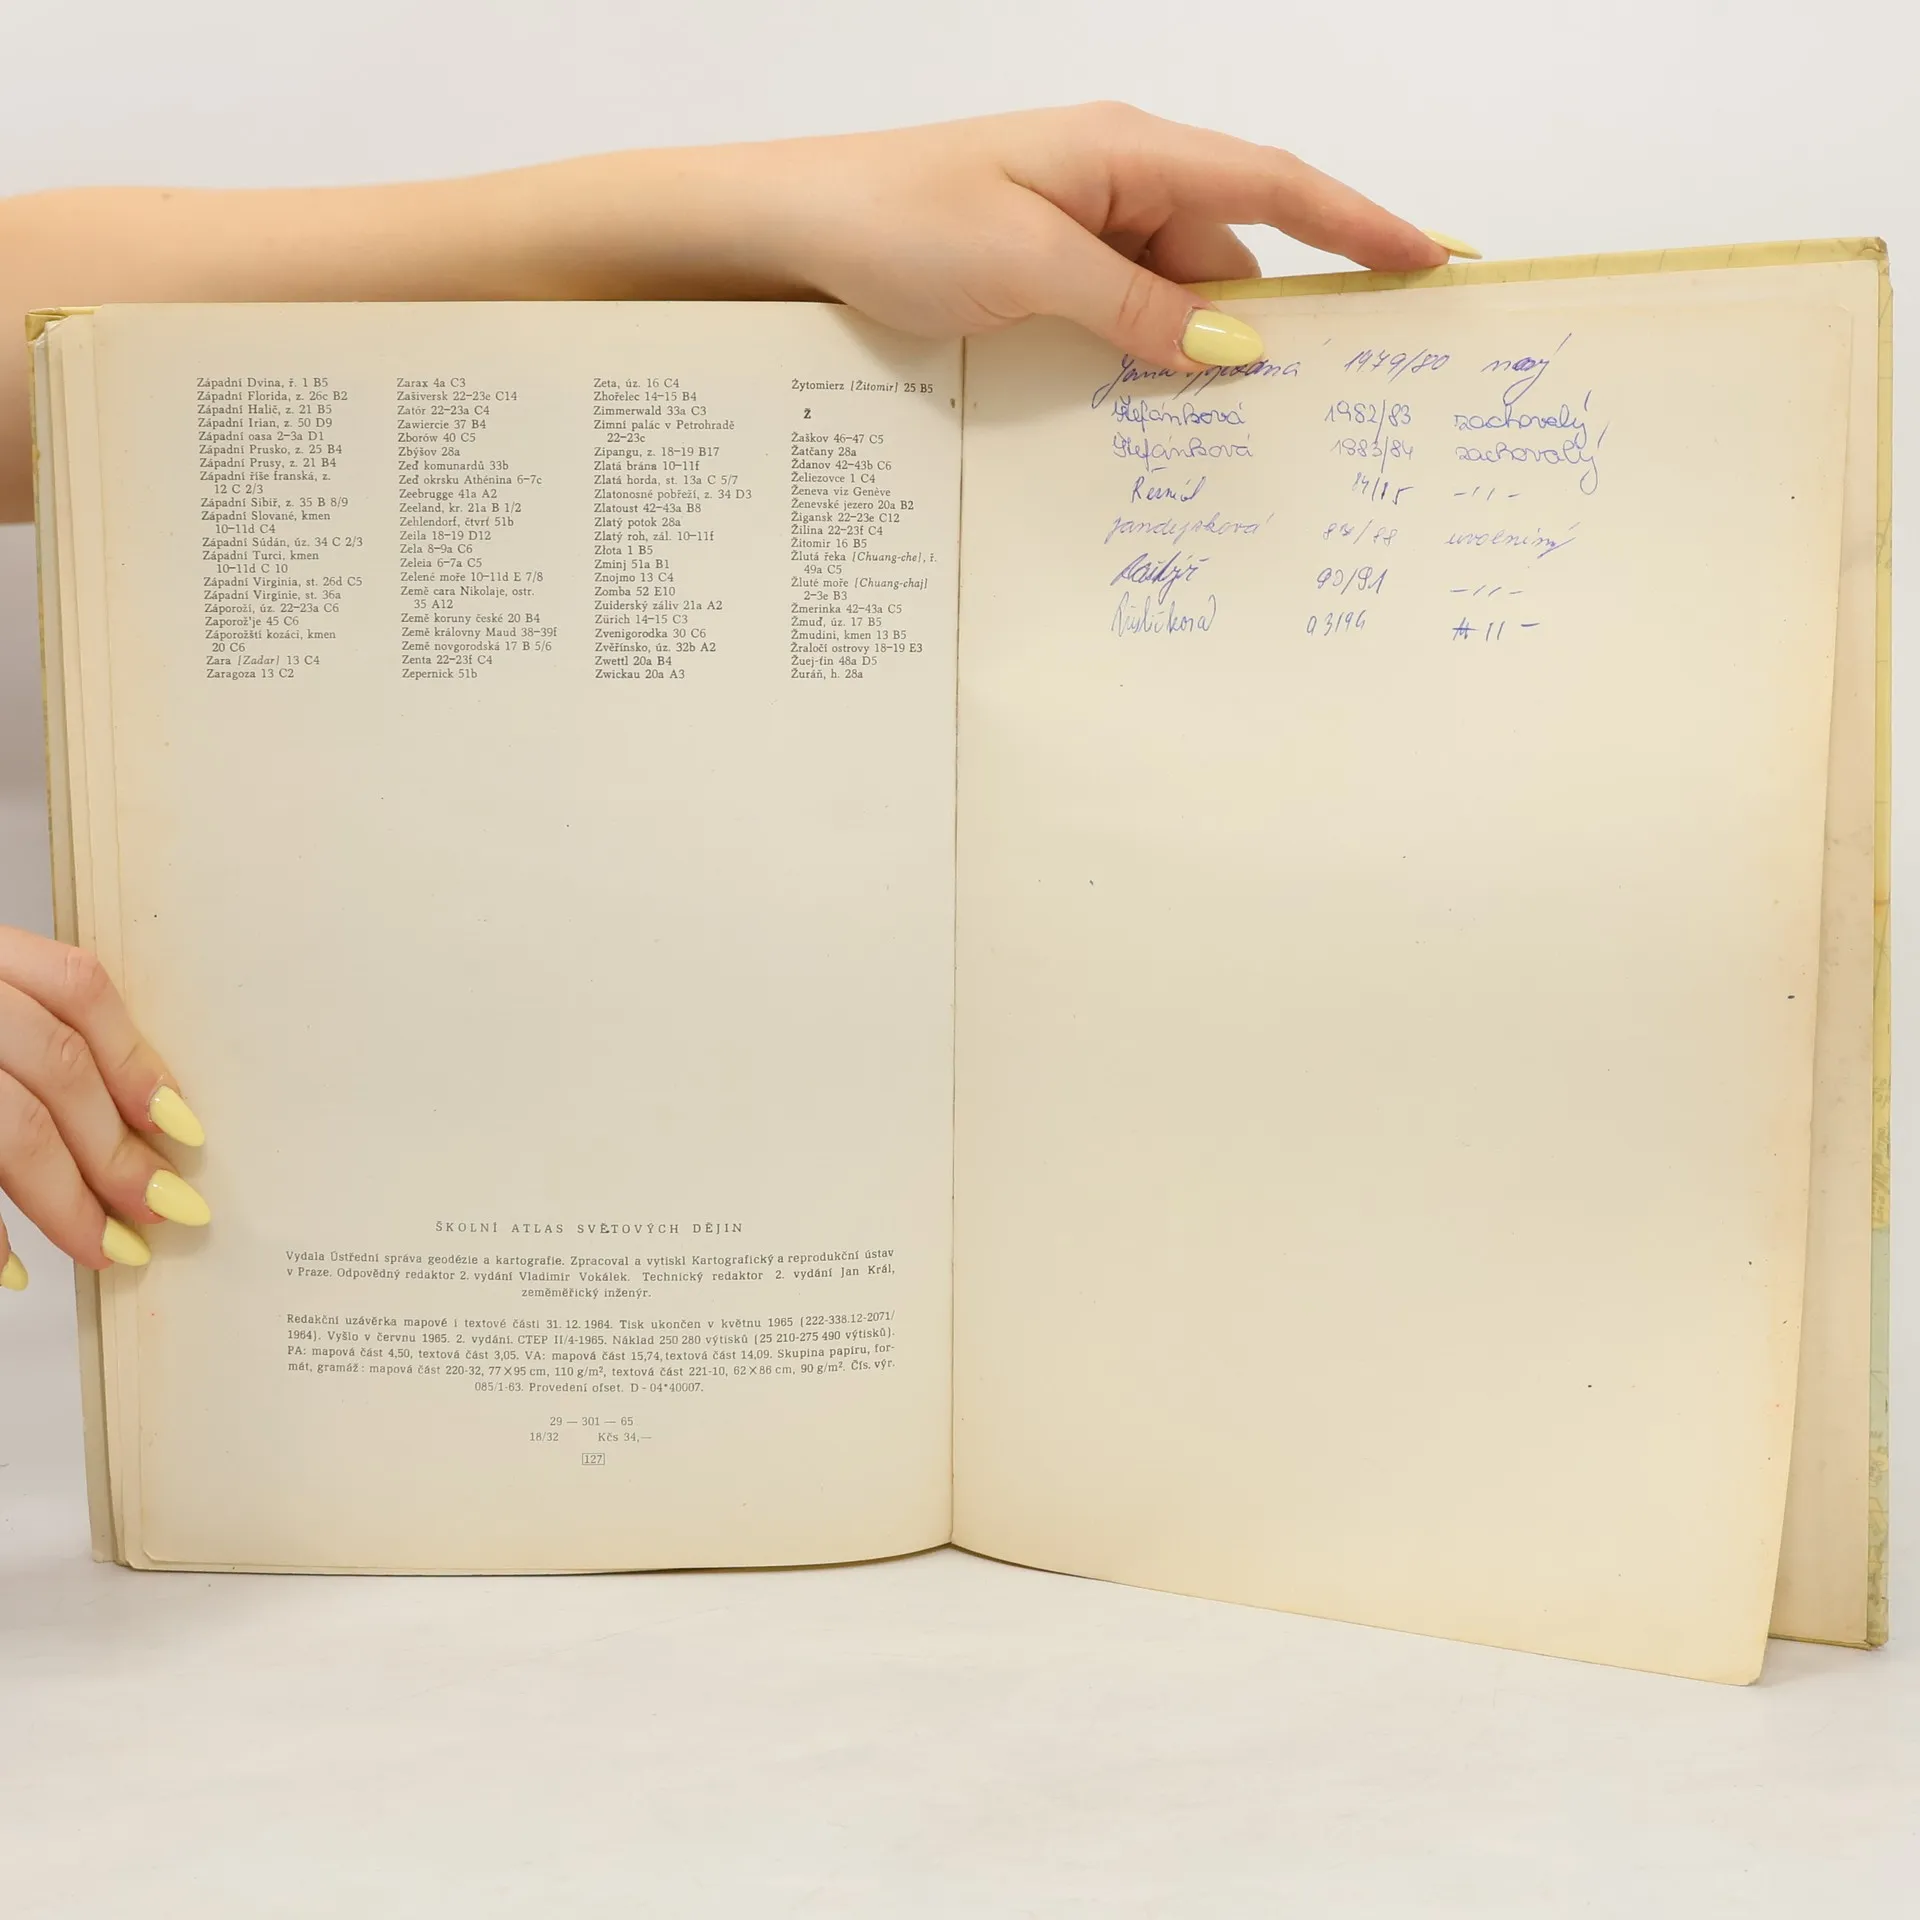 Západní Dvina, ř. 1 B5
Západní Florida, z. 26c B2
Západní Halič, z. 21 B5
Západní Irian, z. 50 D9
Západní oasa 2–3a D1
Západní Prusko, z. 25 B4
Západní Prusy, z. 21 B4
Západní říše franská, z.
12 C 2/3
Západní Sibiř, z. 35 B 8/9
Západní Slované, kmen
10–11d C4
Západní Súdán, úz. 34 C 2/3
Západní Turci, kmen
10–11d C 10
Západní Virginia, st. 26d C5
Západní Virginie, st. 36a
Záporoží, úz. 22–23a C6
Zaporož'je 45 C6
Záporožští kozáci, kmen
20 C6
Zara [Zadar] 13 C4
Zaragoza 13 C2
Zarax 4a C3
Zašiversk 22–23e C14
Zatór 22–23a C4
Zawiercie 37 B4
Zborów 40 C5
Zbýšov 28a
Zeď komunardů 33b
Zeď okrsku Athénina 6–7c
Zeebrugge 41a A2
Zeeland, kr. 21a B 1/2
Zehlendorf, čtvrť 51b
Zeila 18–19 D12
Zela 8–9a C6
Zeleia 6–7a C5
Zelené moře 10–11d E 7/8
Země cara Nikolaje, ostr.
35 A12
Země koruny české 20 B4
Země královny Maud 38–39f
Země novgorodská 17 B 5/6
Zenta 22–23f C4
Zepernick 51b
Zeta, úz. 16 C4
Zhořelec 14–15 B4
Zimmerwald 33a C3
Zimní palác v Petrohradě
22–23c
Zipangu, z. 18–19 B17
Zlatá brána 10–11f
Zlatá horda, st. 13a C 5/7
Zlatonosné pobřeží, z. 34 D3
Zlatoust 42–43a B8
Zlatý potok 28a
Zlatý roh, zál. 10–11f
Złota 1 B5
Zminj 51a B1
Znojmo 13 C4
Zomba 52 E10
Zuiderský záliv 21a A2
Zürich 14–15 C3
Zvenigorodka 30 C6
Zvěřínsko, úz. 32b A2
Zwettl 20a B4
Zwickau 20a A3
Żytomierz [Žitomir] 25 B5
Ž
Žaškov 46–47 C5
Žatčany 28a
Ždanov 42–43b C6
Želiezovce 1 C4
Ženeva viz Genève
Ženevské jezero 20a B2
Žigansk 22–23e C12
Žilina 22–23f C4
Žitomir 16 B5
Žlutá řeka [Chuang-che], ř.
49a C5
Žluté moře [Chuang-chaj]
2–3e B3
Žmerinka 42–43a C5
Žmuď, úz. 17 B5
Žmudini, kmen 13 B5
Žraločí ostrovy 18–19 E3
Žuej-ťin 48a D5
Žuráň, h. 28a
ŠKOLNÍ ATLAS SVĚTOVÝCH DĚJIN
Vydala Ústřední správa geodézie a kartografie. Zpracoval a vytiskl Kartografický a reprodukční ústav
v Praze. Odpovědný redaktor 2. vydání Vladimír Vokálek. Technický redaktor 2. vydání Jan Král,
zeměměřický inženýr.
Redakční uzávěrka mapové i textové části 31. 12. 1964. Tisk ukončen v květnu 1965 (222-338.12-2071/
1964). Vyšlo v červnu 1965. 2. vydání. CTEP II/4-1965. Náklad 250 280 výtisků (25 210-275 490 výtisků).
PA: mapová část 4,50, textová část 3,05. VA: mapová část 15,74, textová část 14,09. Skupina papíru, for-
mát, gramáž: mapová část 220-32, 77×95 cm, 110 g/m², textová část 221-10, 62×86 cm, 90 g/m². Čís. výr.
085/1-63. Provedení ofset. D - 04*40007.
29 — 301 — 65
18/32 Kčs 34,—
127
Jana 1979/80 nový
Štefánková 1982/83 zachovalý
Štefánková 1983/84 zachovalý
84/85 -11-
87/88
90/91 -11-
93/94 11 -